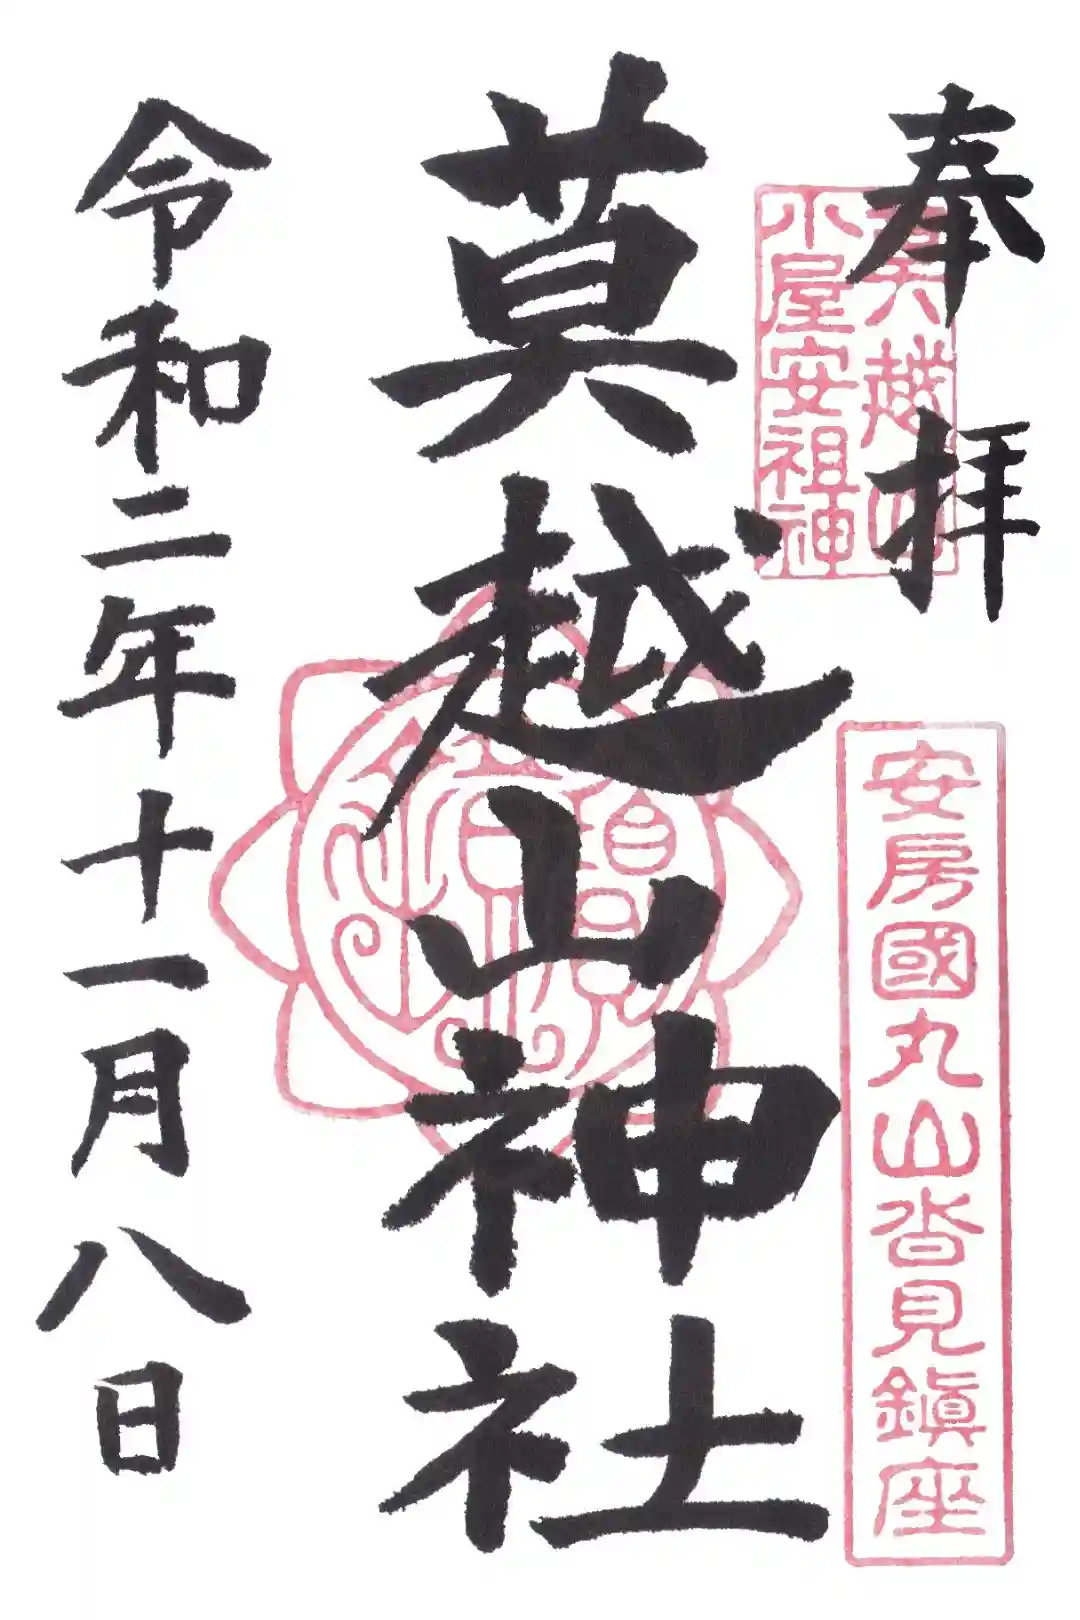 奉拝
莫越山
小屋安祖神
安房國丸山沓見鎮座
莫越山神社
令和二年十一月八日